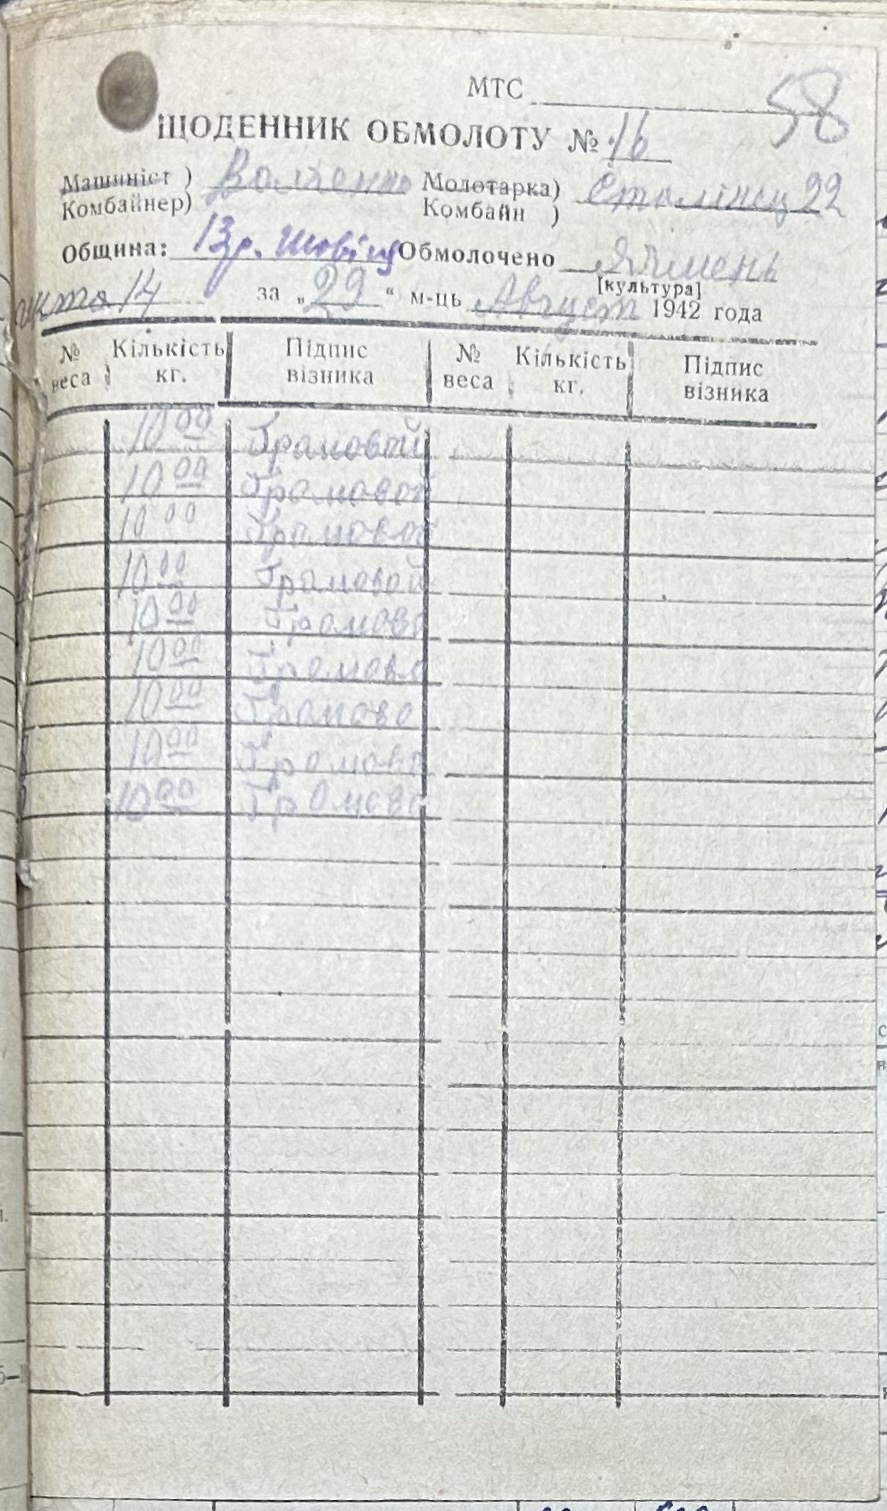 МТС 58
ЩОДЕННИК ОБМОЛОТУ № 16
Машиніст ) Молотарка) Сталінец 22
Комбайнер) Комбайн )
Община: 13 р. Обмолочено Ячмень
[культура]
акта 14 за „29“ м-ць Август 1942 года
№ веса Кількість кг. Підпис візника № веса Кількість кг. Підпис візника
10 00 Грамовой
10 00 Грамовой
10 00 Грамовой
10 00 Грамовой
10 00 Грамово
10 00 Грамово
10 00 Грамово
10 00 Грамово
10 00 Грамово